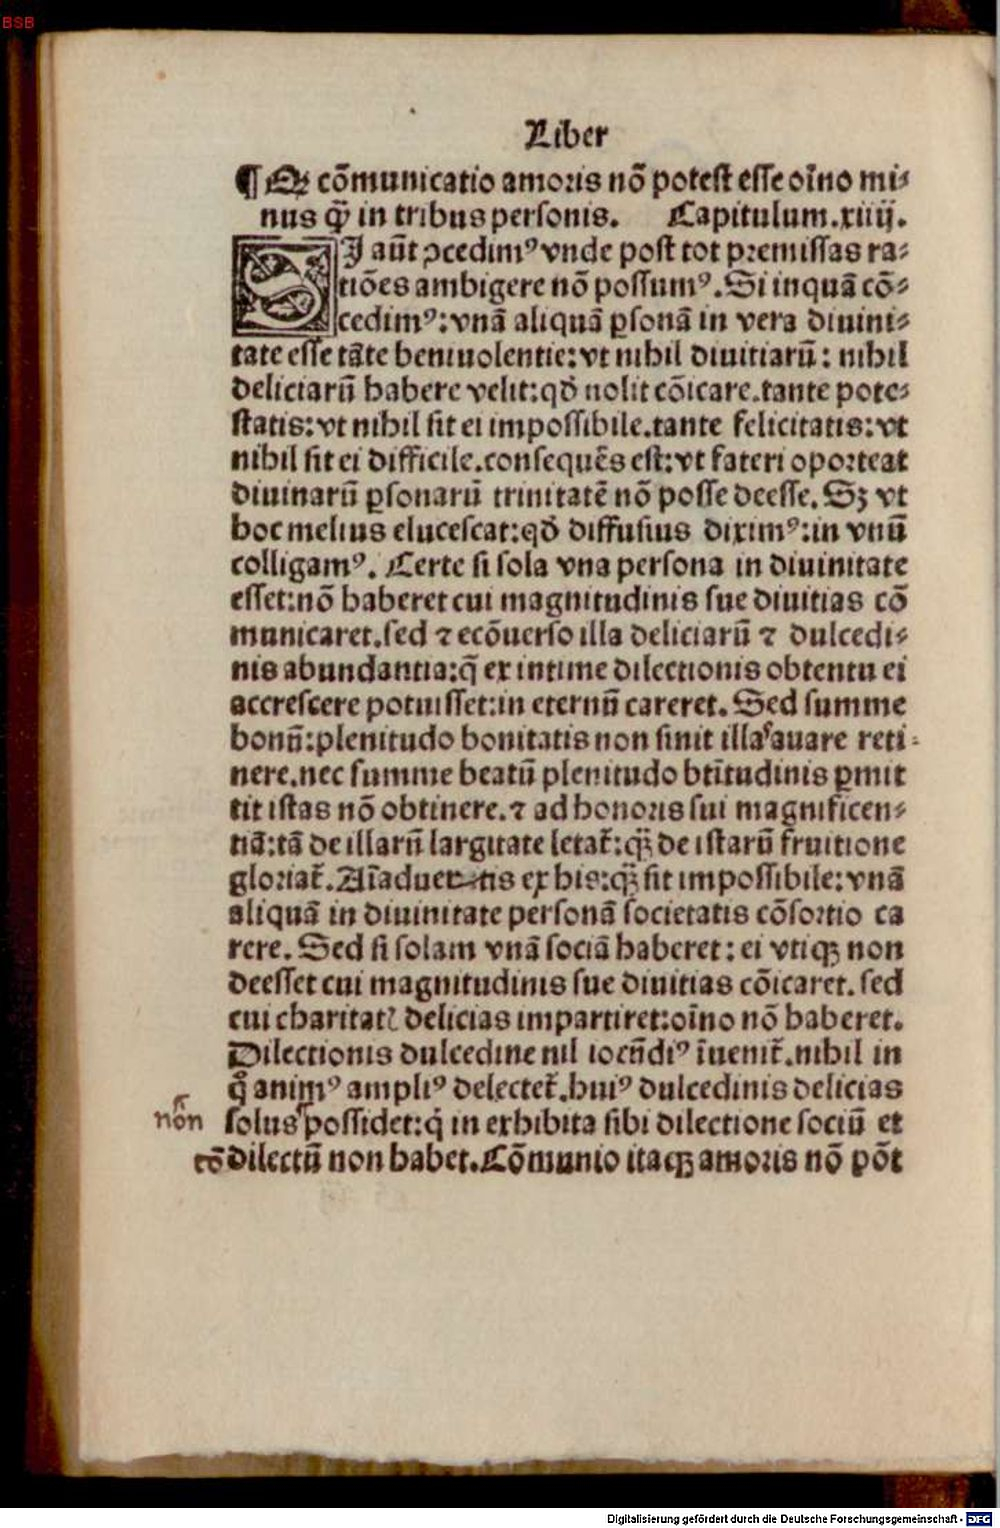 BSB
Liber
¶ Qꝫ cõmunicatio amoris nõ potest esse oĩno mi⸗
nus q̃ in tribus personis. Capitulum.xiiij.
SI aũt ꝯcedimꝰ vnde post tot premissas ra⸗
tiões ambigere nõ possumꝰ. Si inquã cõ⸗
cedimꝰ: vnã aliquã ꝑsonã in vera diuini⸗
tate esse tãte beniuolentie: vt nihil diuitiarũ: nihil
deliciarũ habere velit: qđ nolit cõicare. tante pote⸗
statis: vt nihil sit ei impossibile. tante felicitatis: vt
nihil sit ei difficile. consequẽs est: vt fateri oporteat
diuinarũ ꝑsonarũ trinitatẽ nõ posse deesse. Sꝫ vt
hoc melius elucescat: qđ diffusius diximꝰ: in vnũ
colligamꝰ. Certe si sola vna persona in diuinitate
esset: nõ haberet cui magnitudinis sue diuitias cõ
municaret. sed ⁊ ecõuerso illa deliciarũ ⁊ dulcedi⸗
nis abundantia: q̃ ex intime dilectionis obtentu ei
accrescere potuisset: in eternũ careret. Sed summe
bonũ: plenitudo bonitatis non sinit illaſauare reti⸗
nere. nec summe beatũ plenitudo btĩtudinis ꝑmit
tit istas nõ obtinere. ⁊ ad honoris sui magnificen⸗
tiã: tã de illarũ largitate letat̃: qꝫ̃ de istarũ fruitione
gloriat̃. Aĩaduertis ex his: qꝫ̃ sit impossibile: vnã
aliquã in diuinitate personã societatis cõsortio ca
rere. Sed si solam vnã sociã haberet: ei vtiqꝫ non
deesset cui magnitudinis sue diuitias cõicaret. sed
cui charitatꝭ delicias impartiret: oĩno nõ haberet.
Dilectionis dulcedine nil iocũdiꝰ ĩuenit̃. nihil in
qͦ animꝰ ampliꝰ delectet̃. huiꝰ dulcedinis delicias
nõn
solus possidet: q̇ in exhibita sibi dilectione sociũ et
cõdilectũ non habet. Cõmunio itaqꝫ amoris nõ põt
Digitalisierung gefördert durch die Deutsche Forschungsgemeinschaft - DFG